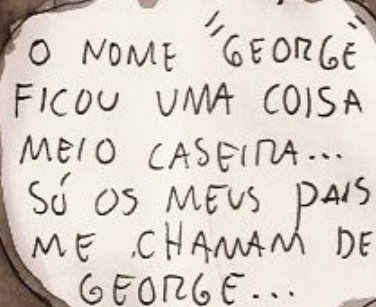 O NOME "GEORGE"
FICOU UMA COISA
MEIO CASEIRA...
SÓ OS MEUS PAIS
ME CHAMAM DE
GEORGE...